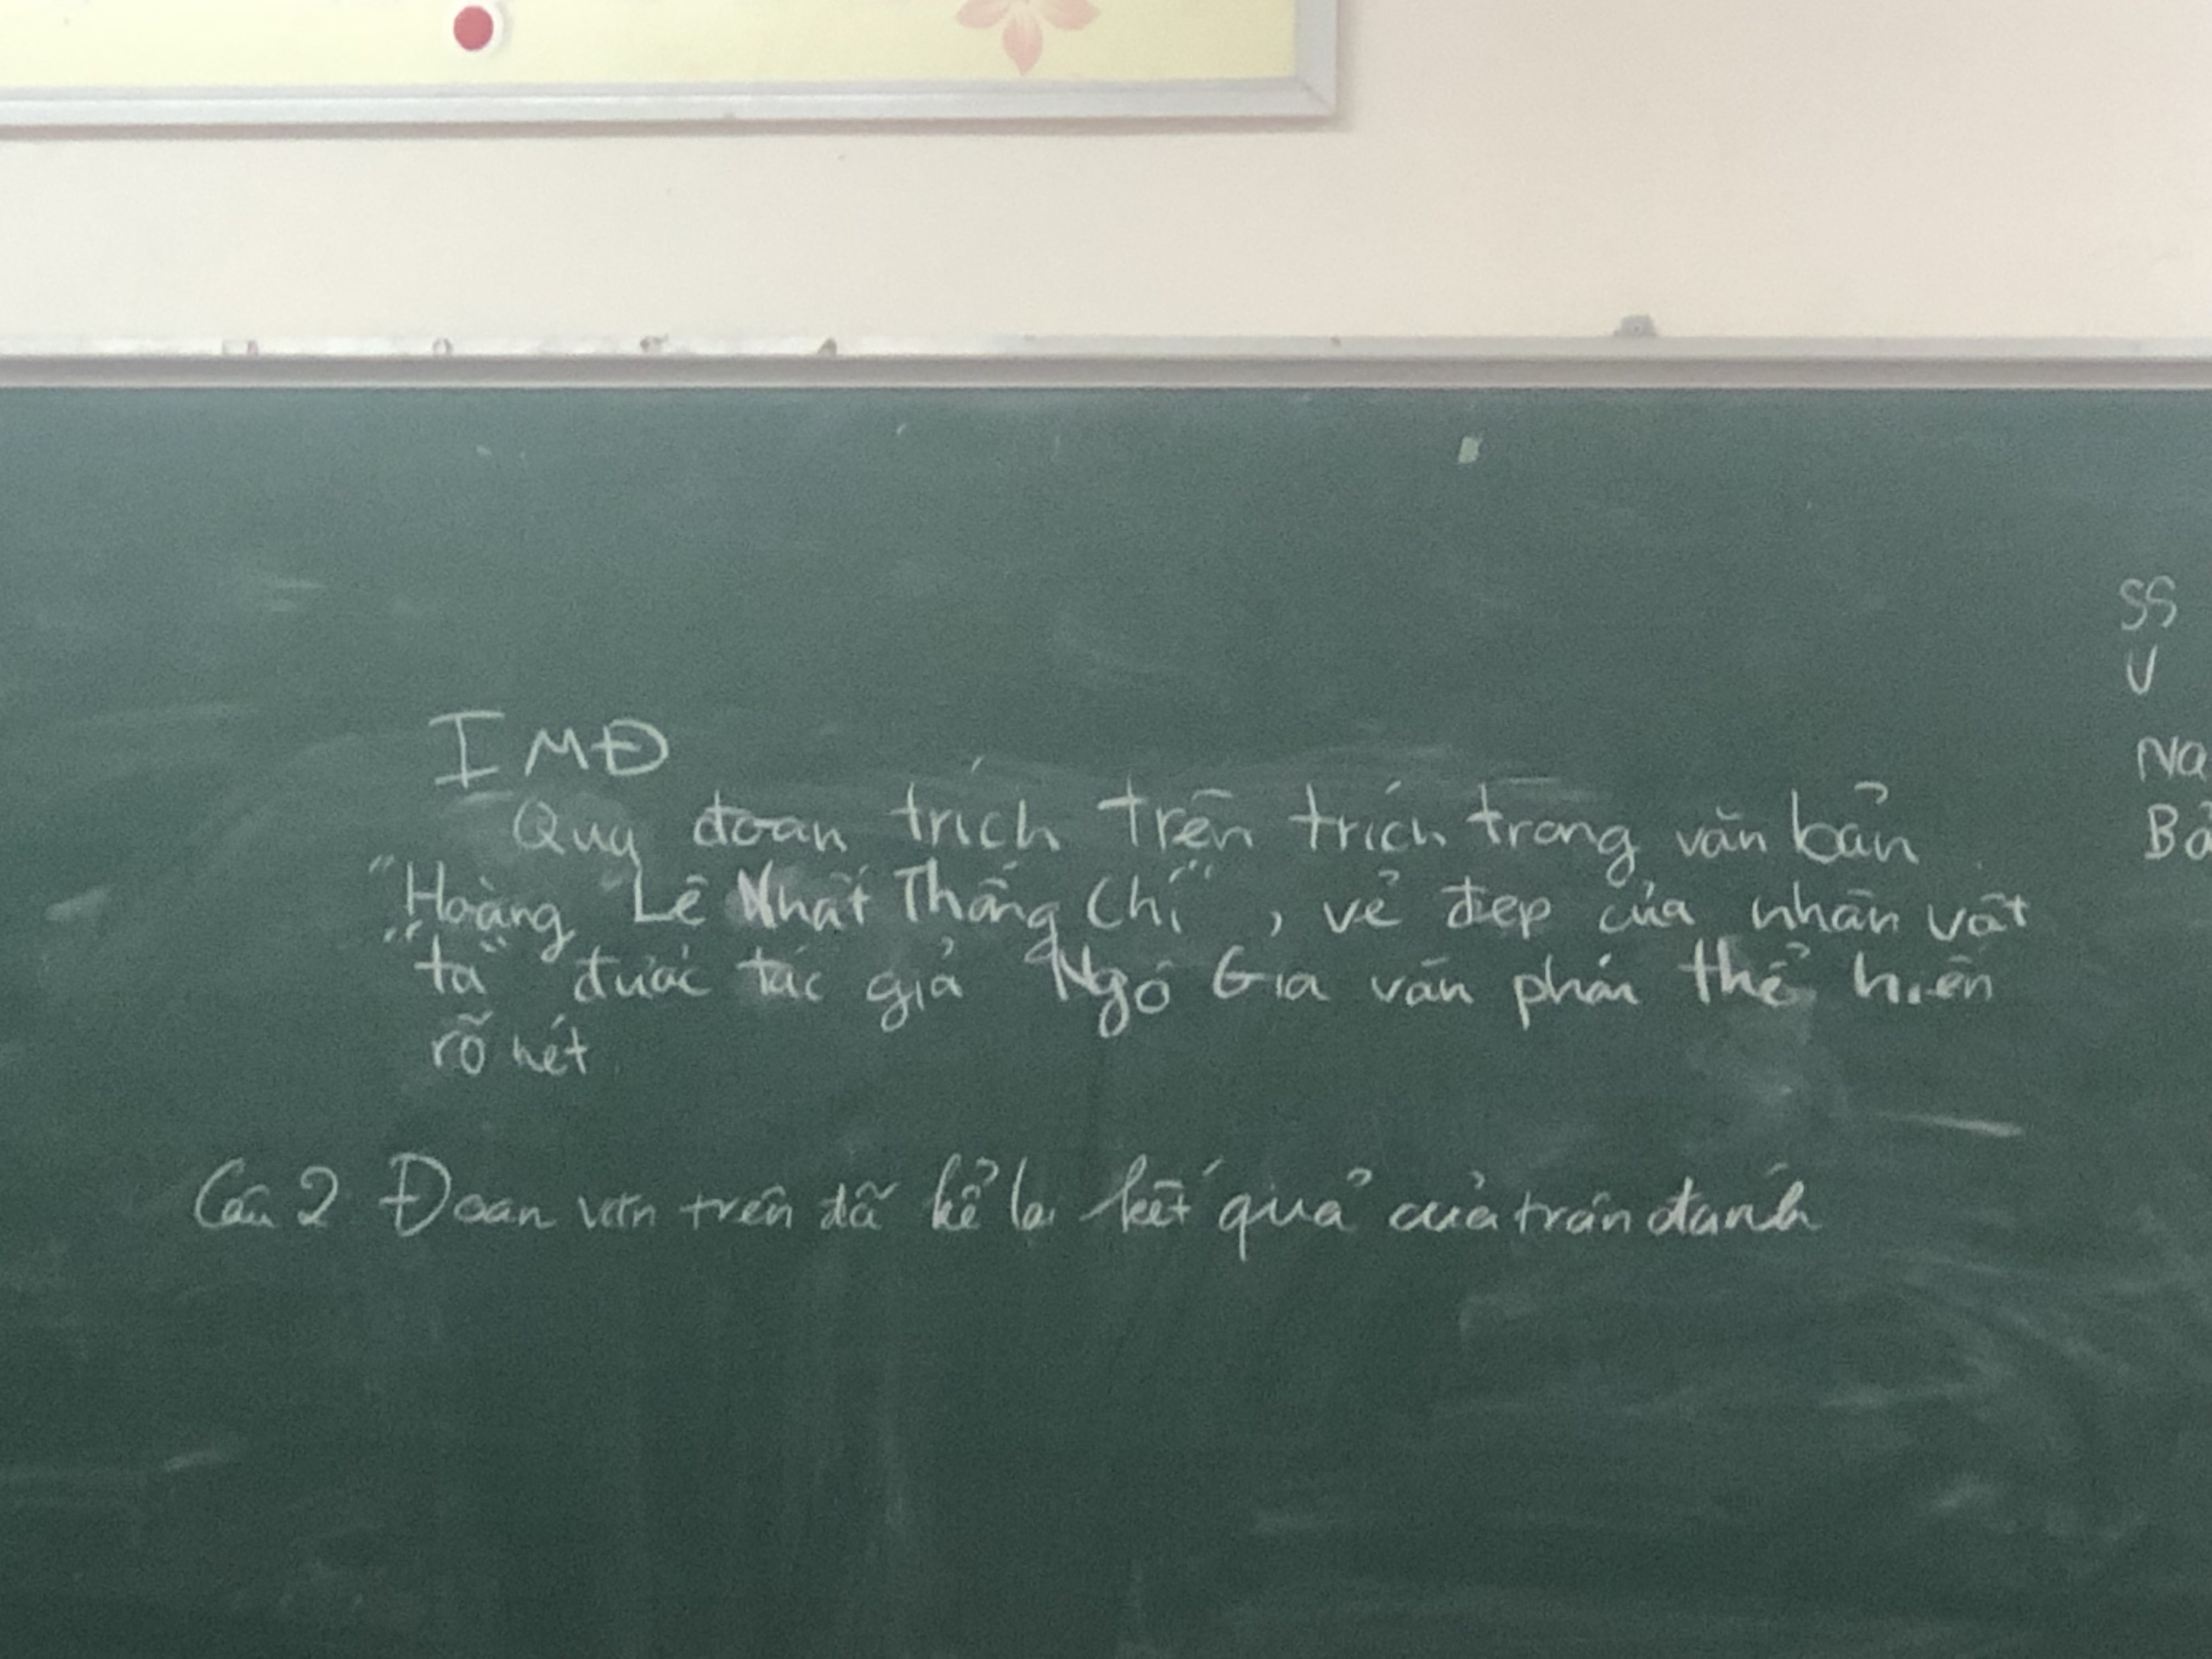 I MĐ
Quy đoan trích trên trích trong văn bản
"Hoàng Lê Nhất Thống Chí", vẻ đẹp của nhân vật
"ta" được tác giả Ngô Gia văn phái thể hiện
rõ nét
Câu 2 Đoan văn trên đã kể lại kết quả của trân đánh
SS
V
Na
Bả